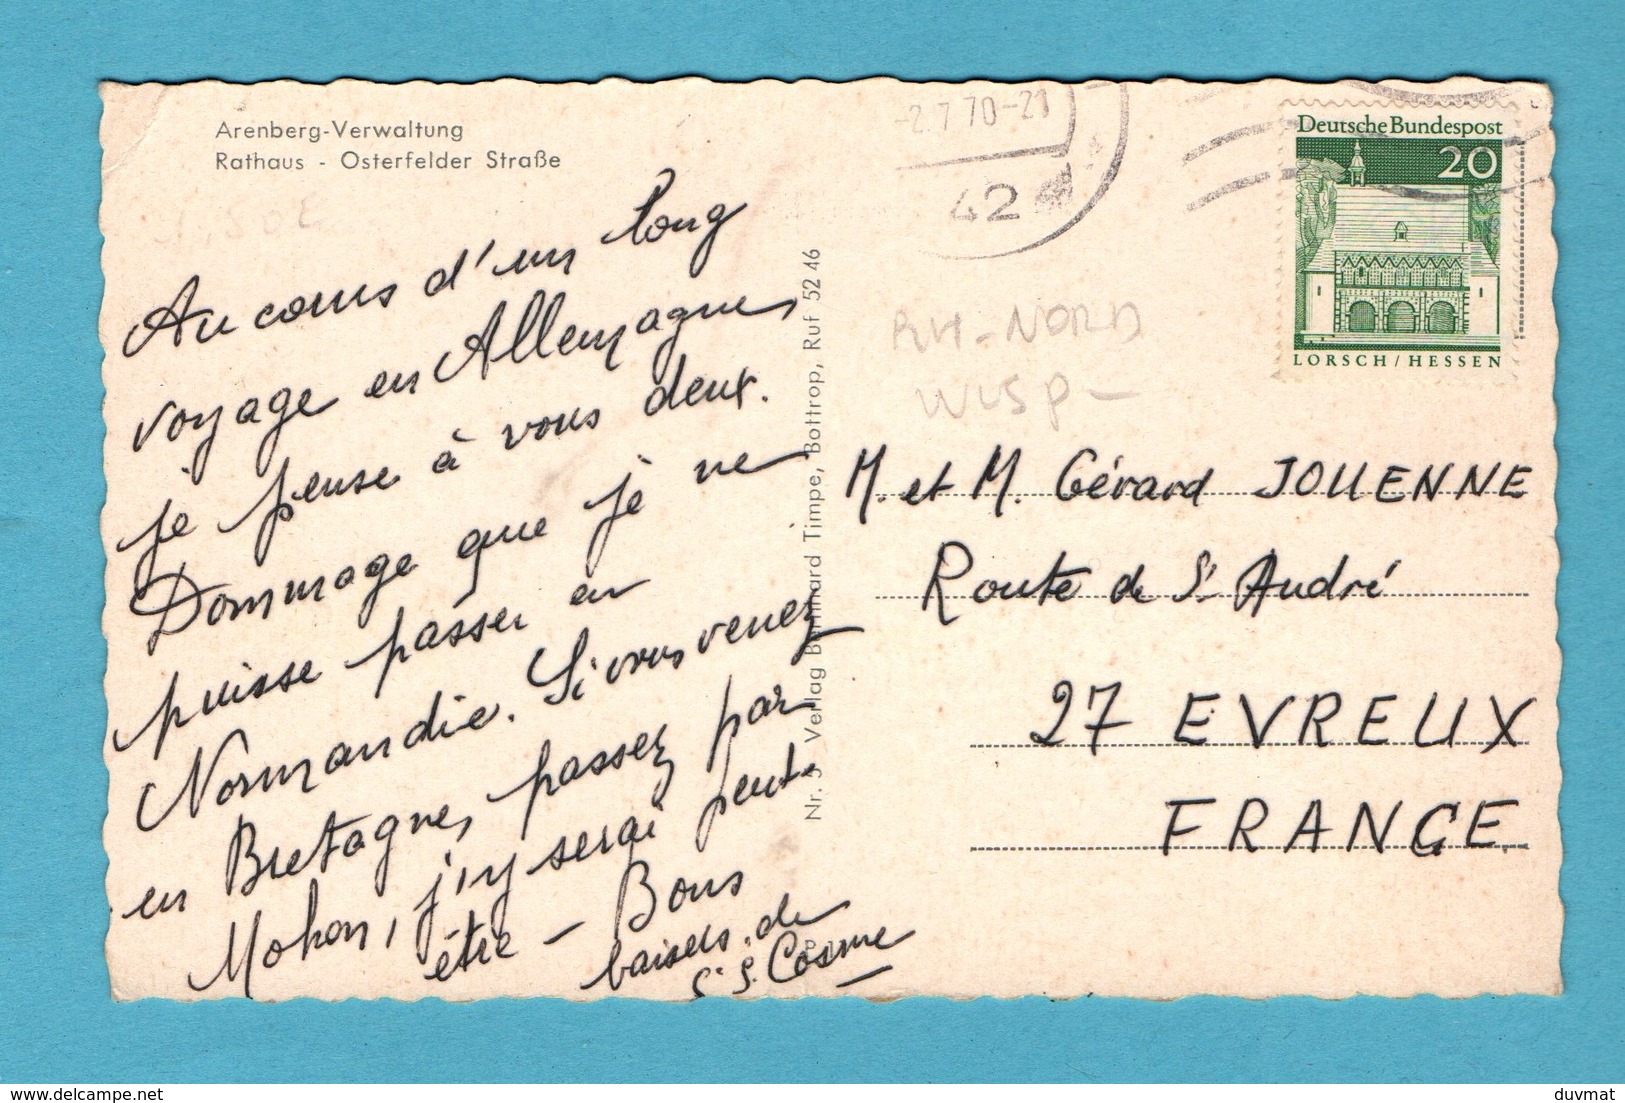 Arenberg-Verwaltung
Rathaus - Osterfelder Straße
Au cours d'un long
voyage en Allemagne,
je pense à vous deux.
Dommage que je ne
puisse passer en
Normandie. Si vous venez
en Bretagne, passez par
Mohon, j'y serai peut-
être - Bons
baisers de
Cosme
Nr. 5 Verlag Bernhard Timpe, Bottrop, Ruf 52 46
-2.7.70-21
42
Deutsche Bundespost
20
LORSCH/HESSEN
RH-NORD
M. et M. Gérard JOUENNE
Route de St André
27 EVREUX
FRANCE
delcampe.net
duvmat